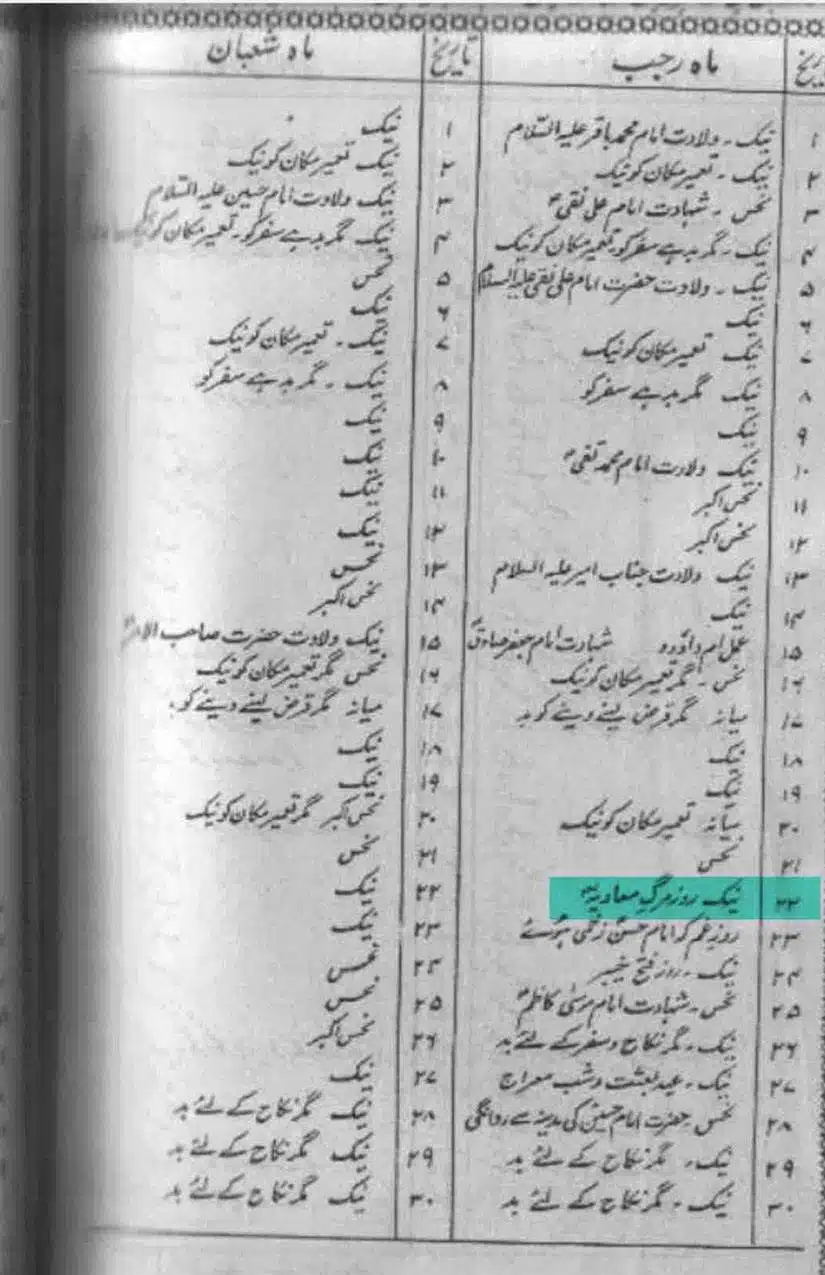 تاریخ ماہ رجب تاریخ ماہ شعبان
۱ نیک۔ ولادت امام محمد باقر علیہ السلام ۱ نیک
۲ نیک۔ تعمیر مکان کو نیک ۲ نیک تعمیر مکان کو نیک
۳ نحس۔ شہادت امام علی نقیؑ ۳ نیک ولادت امام حسین علیہ السلام
۴ نیک۔ مگر بد ہے سفر کو۔ تعمیر مکان کو نیک ۴ نیک مگر بد ہے سفر کو۔ تعمیر مکان کو نیک
۵ نیک۔ ولادت حضرت امام علی نقی علیہ السلام ۵ نحس
۶ نیک ۶ نیک
۷ نیک تعمیر مکان کو نیک ۷ نیک۔ تعمیر مکان کو نیک
۸ نیک مگر بد ہے سفر کو ۸ نیک۔ مگر بد ہے سفر کو
۹ نیک ۹ نیک
۱۰ نیک ولادت امام محمد تقیؑ ۱۰ نیک
۱۱ نحس اکبر ۱۱ نیک
۱۲ نحس اکبر ۱۲ نیک
۱۳ نیک ولادت جناب امیر علیہ السلام ۱۳ نحس
۱۴ نیک ۱۴ نحس اکبر
۱۵ عمل ام داؤد و شہادت امام جعفر صادقؑ ۱۵ نیک ولادت حضرت صاحب الامرؑ
۱۶ نحس۔ مگر تعمیر مکان کو نیک ۱۶ نحس مگر تعمیر مکان کو نیک
۱۷ میانہ مگر قرض لینے دینے کو بد ۱۷ میانہ مگر قرض لینے دینے کو بد
۱۸ نیک ۱۸ نیک
۱۹ نیک ۱۹ نیک
۲۰ میانہ تعمیر مکان کو نیک ۲۰ نحس اکبر مگر تعمیر مکان کو نیک
۲۱ نحس ۲۱ نحس
۲۲ نیک روز مرگ معاویہ ۲۲ نیک
۲۳ روز غم کہ امام حسنؑ زخمی ہوئے ۲۳ نیک
۲۴ نیک۔ روز فتح خیبر ۲۴ نحس
۲۵ نحس۔ شہادت امام موسیٰ کاظمؑ ۲۵ نحس
۲۶ نیک۔ مگر نکاح و سفر کے لئے بد ۲۶ نحس اکبر
۲۷ نیک۔ عید بعثت و شب معراج ۲۷ نیک
۲۸ نحس۔ حضرت امام حسینؑ کی مدینہ سے روانگی ۲۸ نیک مگر نکاح کے لئے بد
۲۹ نیک۔ مگر نکاح کے لئے بد ۲۹ نیک مگر نکاح کے لئے بد
۳۰ نیک۔ مگر نکاح کے لئے بد ۳۰ نیک مگر نکاح کے لئے بد